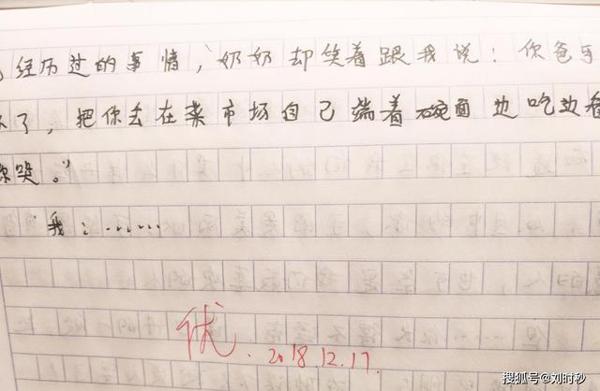 经历过的事情，奶奶却笑着跟我说：你爸
了，把你丢在菜市场自己端着碗面边吃边看
你哭。”
我：……
优. 2018.12.17.
搜狐号@刘时秒